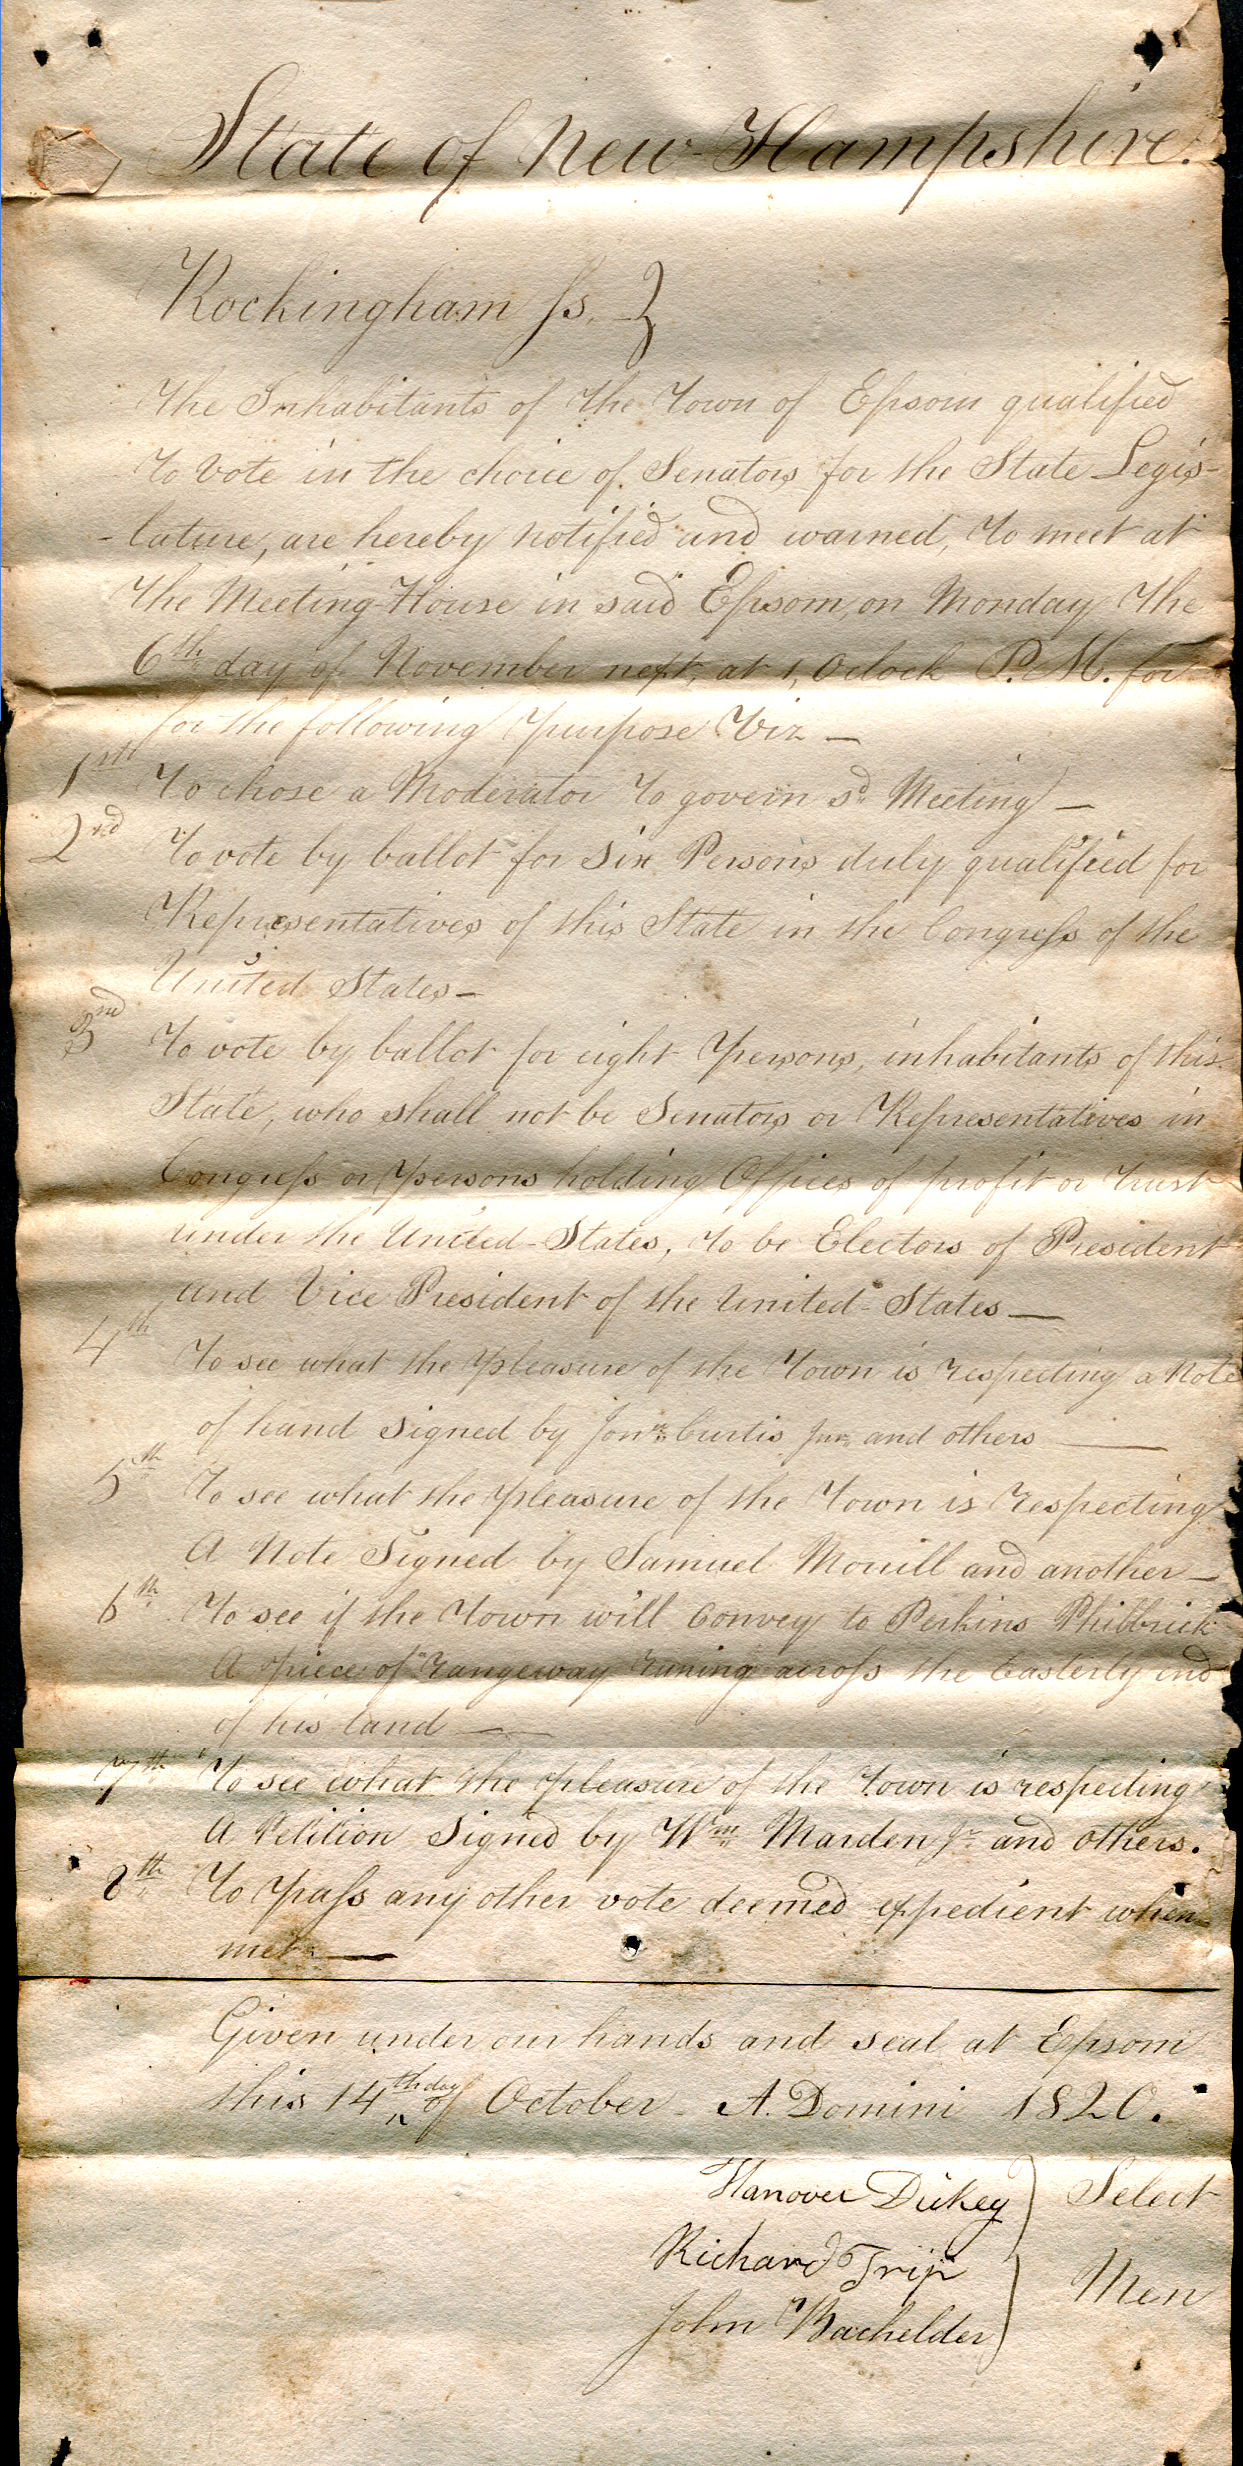 State of New-Hampshire.
Rockingham ss. }
The Inhabitants of the Town of Epsom qualified
to vote in the choice of Senators for the State Legis-
-lature, are hereby notified and warned, to meet at
the Meeting-House in said Epsom, on Monday the
6th day of November next, at 1, Oclock P.M. for
for the following purpose Viz —
1st To chose a Moderator to govern sd Meeting —
2nd To vote by ballot for six Persons duly qualified for
Representatives of this State in the Congress of the
United States —
3rd To vote by ballot for eight persons, inhabitants of this
State, who shall not be Senators or Representatives in
Congress or persons holding Offices of profit or trust
under the United-States, to be Electors of President
and Vice President of the United-States —
4th To see what the pleasure of the Town is respecting a Note
of hand signed by Jona Curtis Junr and others —
5th To see what the pleasure of the Town is respecting
A Note Signed by Samuel Morrill and another —
6th To see if the Town will Convey to Perkins Philbrick
A piece of rangeway runing across the Easterly end
of his land —
7th To see what the pleasure of the Town is respecting
A Petition Signed by Wm Marden Jr and others.
8th To pass any other vote deemed expedient when
met —
Given under our hands and seal at Epsom
this 14th day of October A. Domini 1820.
Hanover Dickey } Select
Richard Trip
John Bachelder } Men